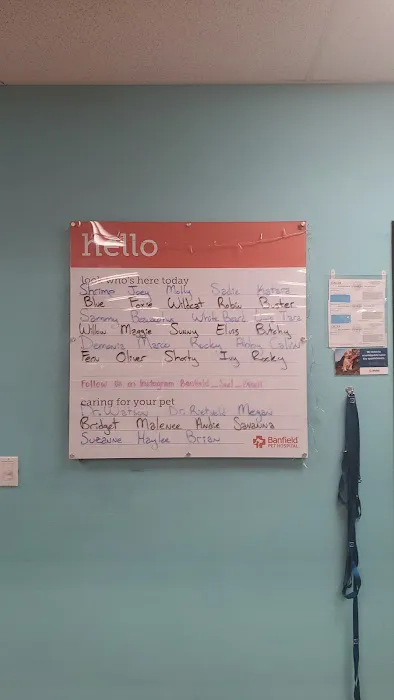 hello
look who's here today
Shrimp Joey Molly Sadie Katara
Blue Foxie Wildcat Robin Buster
Sammy White Beard Tara
Willow Maggie Sunny Elvis Bitchy
Marie Rocky Abby
Fern Oliver Shorty Ivy Rocky
Follow us on Instagram Banfield
caring for your pet
Dr. Watson Dr. Megan
Bridget Malenee Andie Savanna
Suzanne Haylee Brian
Banfield
PET HOSPITAL